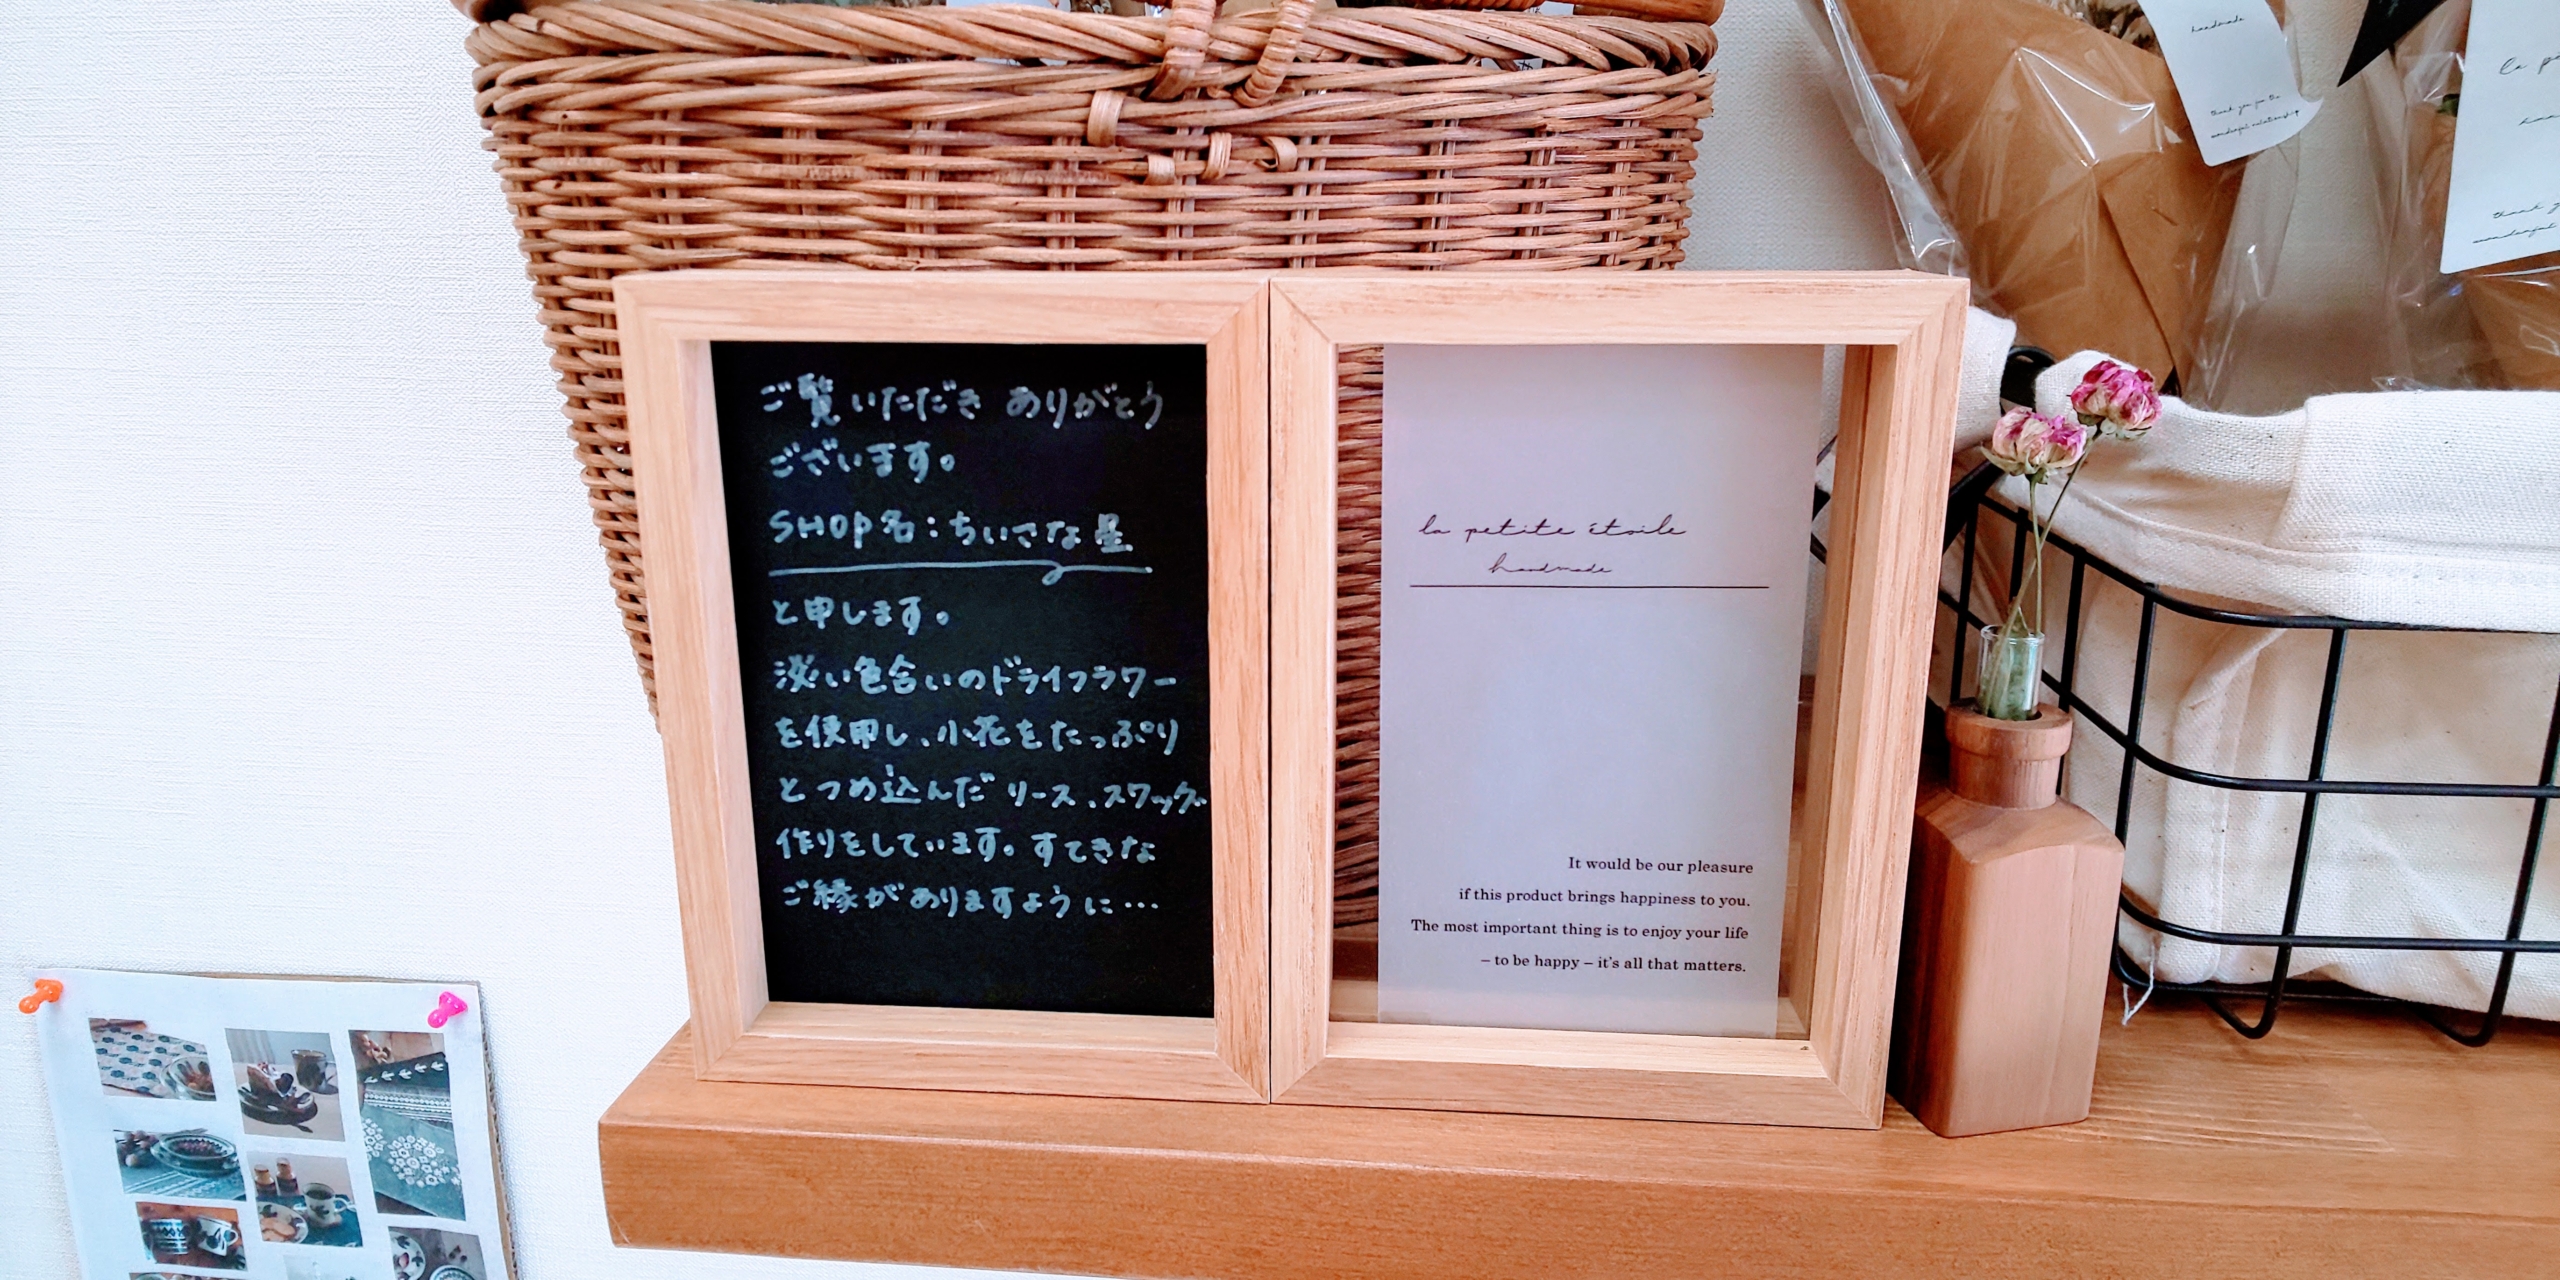 ご覧いただき ありがとう
ございます。
SHOP名:ちいさな星
と申します。
淡い色合いのドライフラワー
を使用し、小花をたっぷり
とつめ込んだ リース、スワッグ
作りをしています。すてきな
ご縁がありますように…
la petite étoile
handmade
It would be our pleasure
if this product brings happiness to you.
The most important thing is to enjoy your life
– to be happy – it's all that matters.
handmade
thank you for the
wonderful relationship
la pe
thank y
wonderful